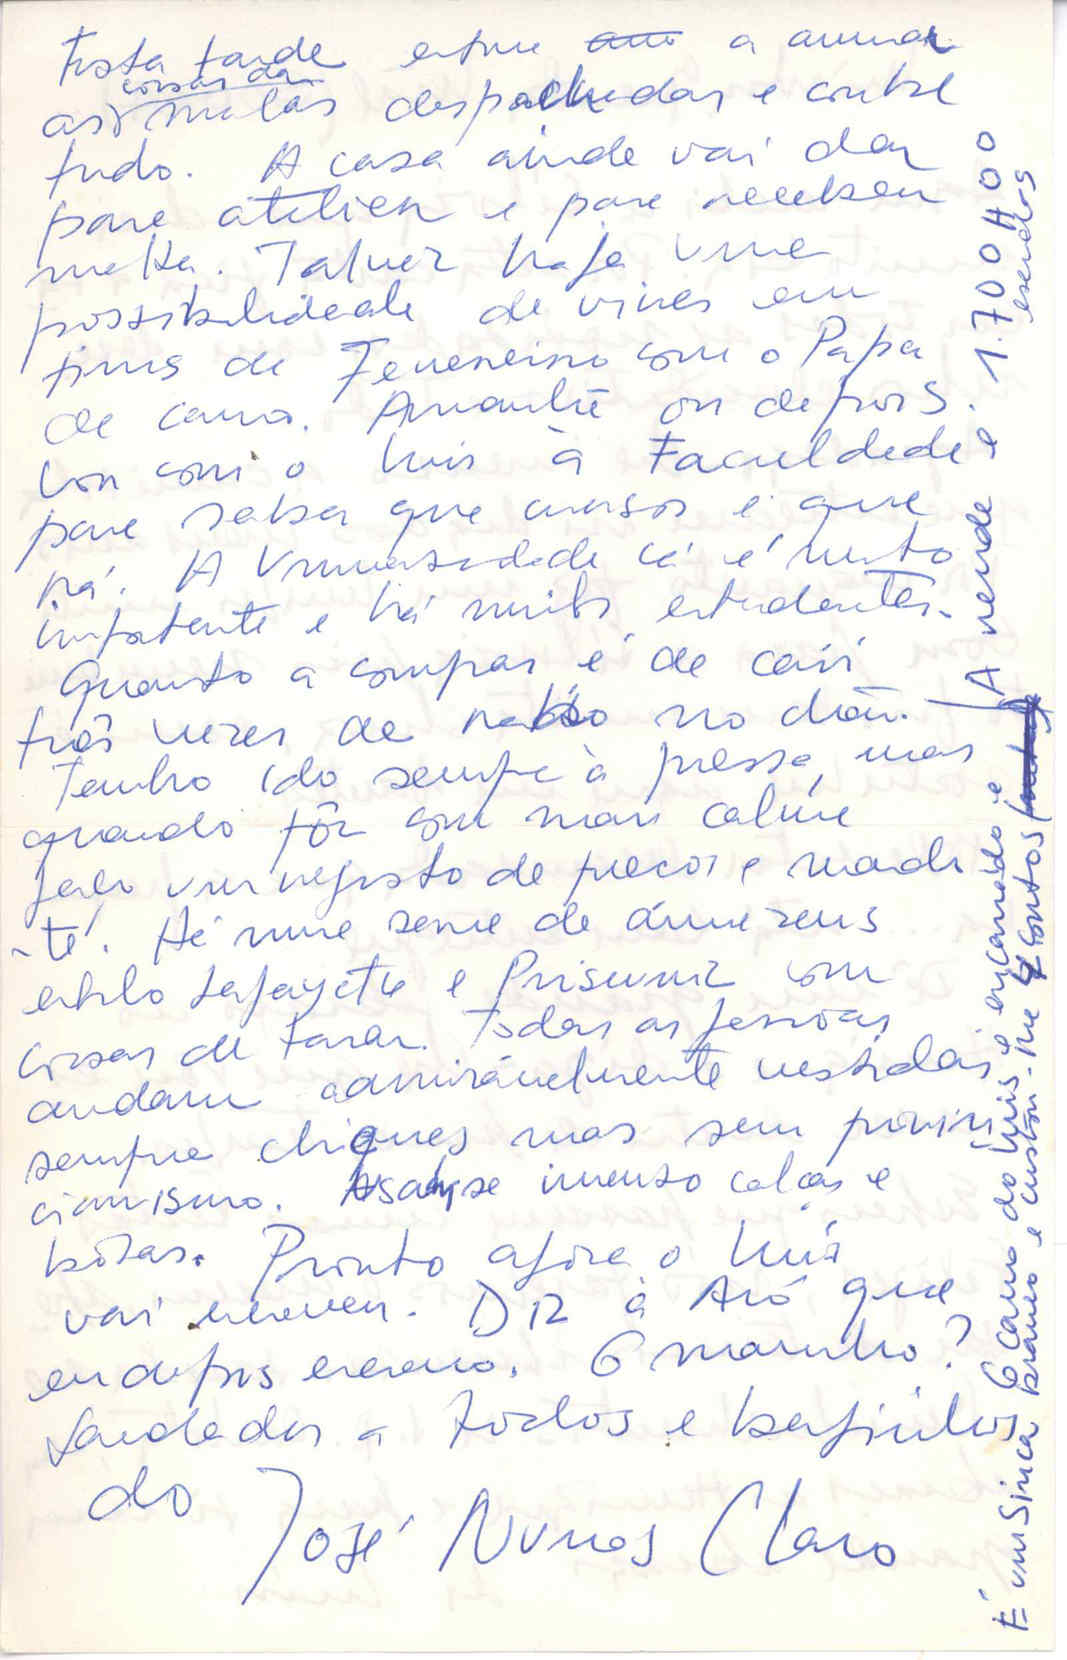 Esta tarde estive a arrumar
coisas das
as malas despachadas e contei
tudo. A casa ainda vai dar
para atelier e para receber
malta. Talvez haja uma
possibilidade de vires em
fins de Fevereiro com o Papa
de carro. Amanhã ou depois
vou com o Luis à Faculdade
para saber que cursos é que
há. A Universidade cá é muito
importante e há muitos estudantes.
Quanto a compras é de cair
três vezes de rabo no chão.
Tenho ido sempre à pressa, mas
quando fôr com mais calma
falo um registo de preços e mando
-te. Há uma serie de armazens
estilo Lafayette e Prisunic com
coisas de tarar. Todas as pessoas
andam admirávelmente vestidas
sempre chiques mas sem provin
cianismo. Usam-se imenso calças e
botas. Pronto agora o Luis
vai escrever. Diz à Avó que
eu depois escrevo. O marinho?
Saudades a todos e beijinhos
do
José Nunes Claro
A renda é 1.700$00
escudos
O carro do Luis é encarnado e
É um Simca branco e custou-me 4 contos